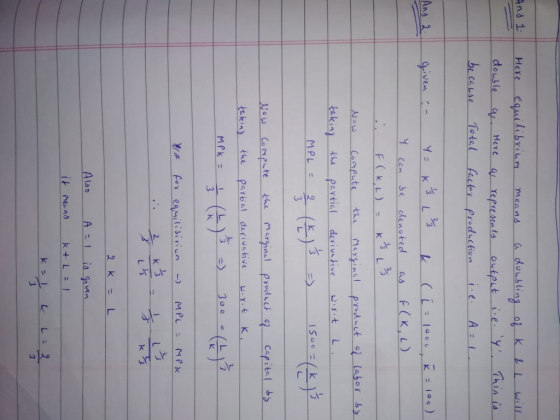 Ans 1 Here equilibrium means a doubling of K & L will
double y. Here y represents output i.e. 'y'. This is
because Total factor production i.e. A = 1.
Ans 2 given :- Y = K^1/3 L^2/3 & ( L̄ = 1000, K̄ = 100)
Y can be denoted as F(K,L)
∴ F(K,L) = K^1/3 L^2/3
Now Compute the Marginal product of labor by
taking the partial derivative w.r.t L.
MPL = 2/3 (K/L)^1/3 => 1500 = (K/L)^1/3
Now Compute the Marginal product of Capital by
taking the partial derivative w.r.t K.
MPK = 1/3 (L/K)^2/3 => 300 = (L/K)^2/3
for equilibrium → MPL = MPK
∴ 2/3 K^1/3/L^1/3 = 1/3 L^2/3/K^2/3
2K = L
Also A = 1 is given
it means K + L = 1
K = 1/3 & L = 2/3